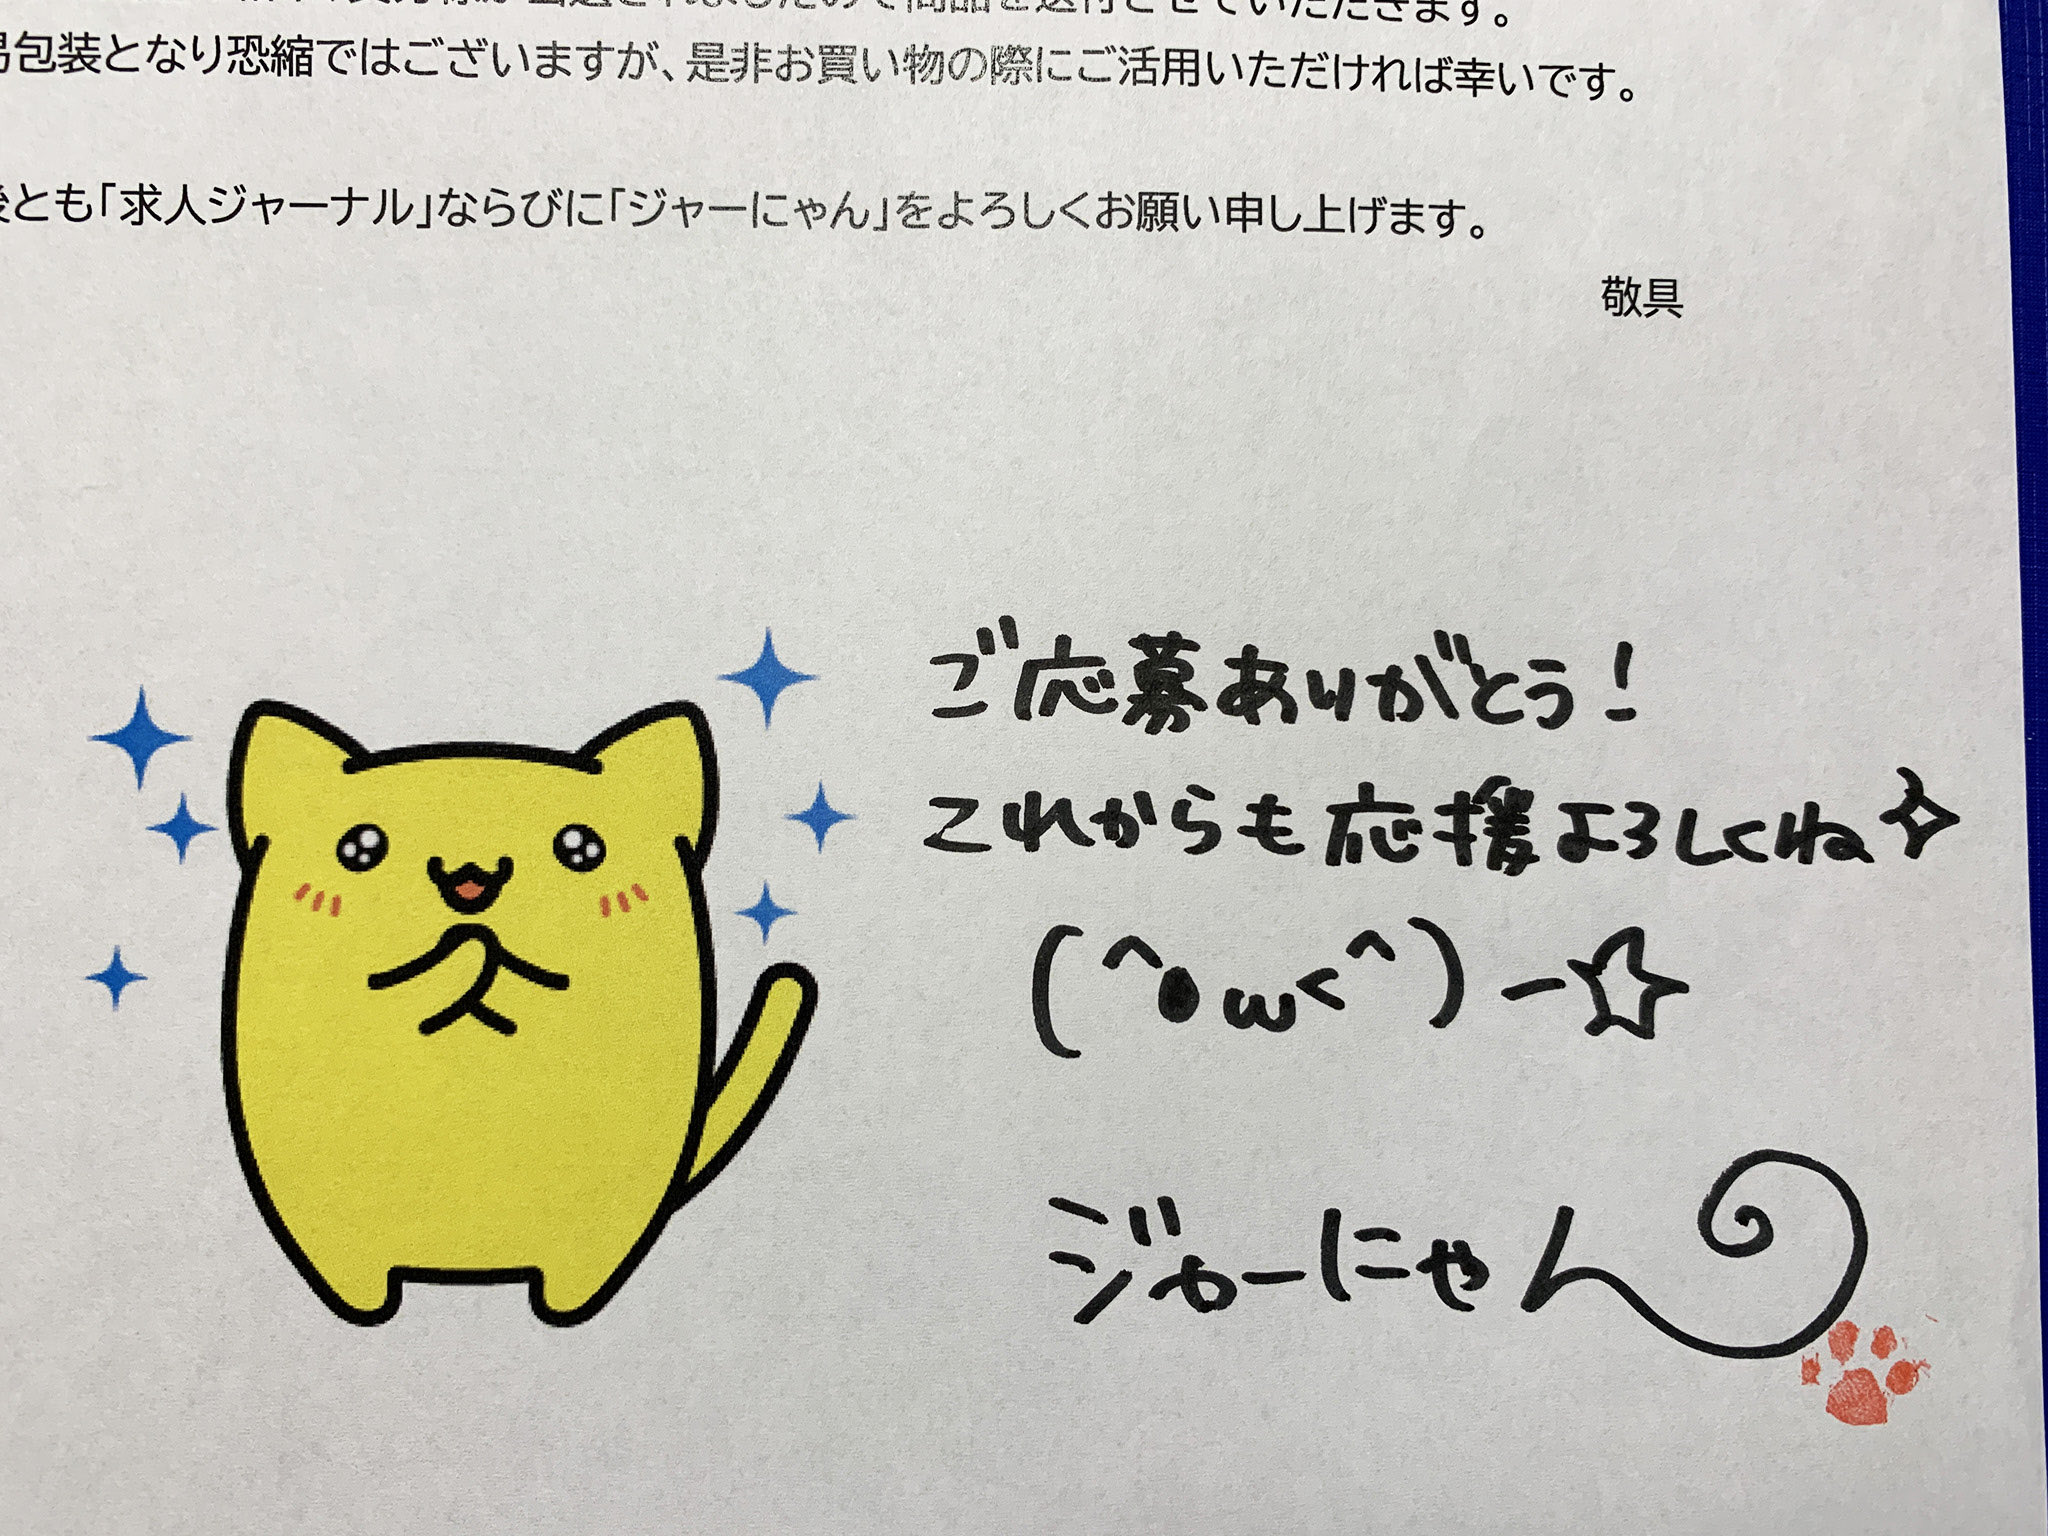 ましたので商品を送付させていただきます。
易包装となり恐縮ではございますが、是非お買い物の際にご活用いただければ幸いです。
後とも「求人ジャーナル」ならびに「ジャーにゃん」をよろしくお願い申し上げます。
敬具
ご応募ありがとう!
これからも応援よろしくね✧
(^●ω<^)ー☆
ジャーにゃん